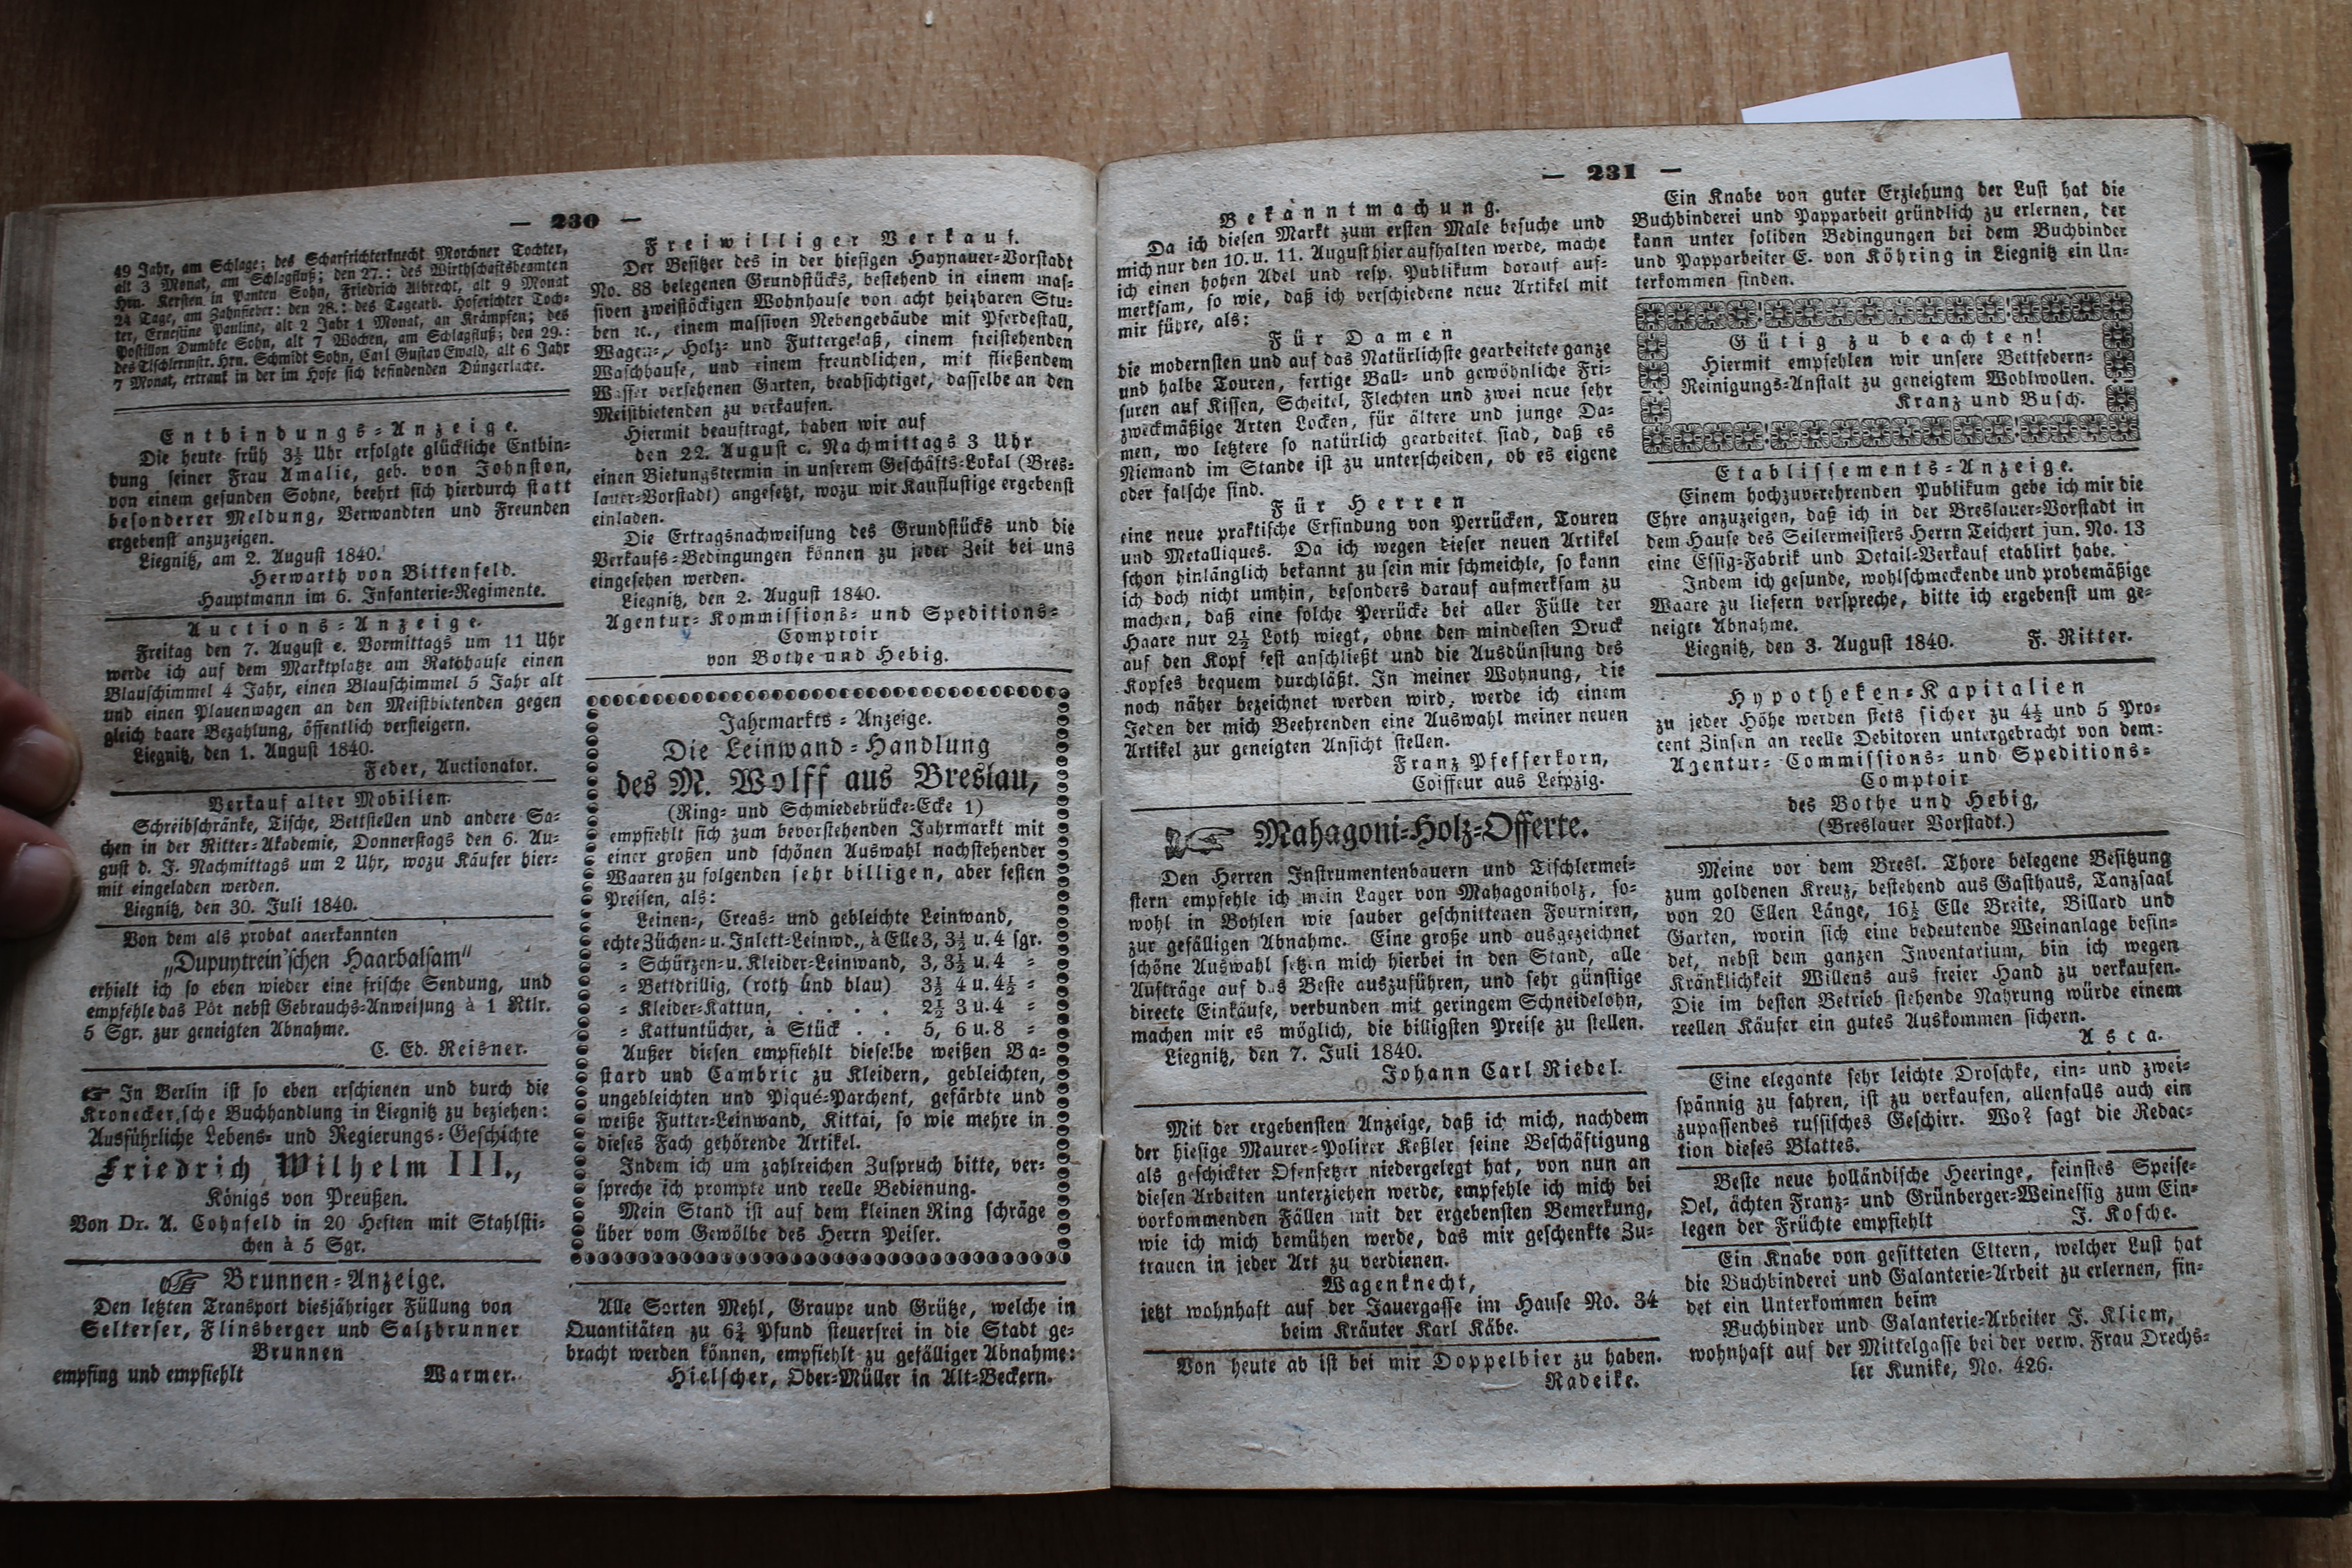 — 230 —
49 Jahr, am Schlage; des Scharfrichterknecht Morchner Tochter,
alt 3 Monat, am Schlagfluß; den 27.: des Wirthschaftsbeamten
Hrn. Kersten in Panten Sohn, Friedrich Albrecht, alt 9 Monat
24 Tage, am Zahnfieber: den 28.: des Tagearb. Hoferichter Toch-
ter, Ernestine Pauline, alt 2 Jahr 1 Monat, an Krämpfen; des
Postillon Dumbke Sohn, alt 7 Wochen, am Schlagfluß; den 29.:
des Tischlermstr. Hrn. Schmidt Sohn, Carl Gustav Ewald, alt 6 Jahr
7 Monat, ertrank in der im Hofe sich befindenden Düngerlache.
Entbindungs-Anzeige.
Die heute früh 3½ Uhr erfolgte glückliche Entbin-
dung seiner Frau Amalie, geb. von Johnston,
von einem gesunden Sohne, beehrt sich hierdurch statt
besonderer Meldung, Verwandten und Freunden
ergebenst anzuzeigen.
Liegnitz, am 2. August 1840.
Herwarth von Bittenfeld.
Hauptmann im 6. Infanterie-Regimente.
Auctions-Anzeige.
Freitag den 7. August e. Vormittags um 11 Uhr
werde ich auf dem Marktplatze am Rathhause einen
Blauschimmel 4 Jahr, einen Blauschimmel 5 Jahr alt
und einen Plauenwagen an den Meistbietenden gegen
gleich baare Bezahlung, öffentlich versteigern.
Liegnitz, den 1. August 1840.
Feder, Auctionator.
Verkauf alter Mobilien.
Schreibschränke, Tische, Bettstellen und andere Sa-
chen in der Ritter-Akademie, Donnerstags den 6. Au-
gust d. J. Nachmittags um 2 Uhr, wozu Käufer hier-
mit eingeladen werden.
Liegnitz, den 30. Juli 1840.
Von dem als probat anerkannten
„Dupuytrein'schen Haarbalsam“
erhielt ich so eben wieder eine frische Sendung, und
empfehle das Pôt nebst Gebrauchs-Anweisung à 1 Rtlr.
5 Sgr. zur geneigten Abnahme.
C. Ed. Reisner.
☛ In Berlin ist so eben erschienen und durch die
Kronecker,sche Buchhandlung in Liegnitz zu beziehen:
Ausführliche Lebens- und Regierungs-Geschichte
Friedrich Wilhelm III.,
Königs von Preußen.
Von Dr. A. Cohnfeld in 20 Heften mit Stahlsti-
chen à 5 Sgr.
☞ Brunnen-Anzeige.
Den letzten Transport diesjähriger Füllung von
Selterser, Flinsberger und Salzbrunner
Brunnen
empfing und empfiehlt Warmer.
Freiwilliger Verkauf.
Der Besitzer des in der hiesigen Haynauer-Vorstadt
No. 88 belegenen Grundstücks, bestehend in einem mas-
siven zweistöckigen Wohnhause von acht heizbaren Stu-
ben ꝛc., einem massiven Nebengebäude mit Pferdestall,
Wagen-, Holz- und Futtergelaß, einem freistehenden
Waschhause, und einem freundlichen, mit fließendem
Wasser versehenen Garten, beabsichtiget, dasselbe an den
Meistbietenden zu verkaufen.
Hiermit beauftragt, haben wir auf
den 22. August c. Nachmittags 3 Uhr
einen Bietungstermin in unserem Geschäfts-Lokal (Bres-
lauer-Vorstadt) angesetzt, wozu wir Kauflustige ergebenst
einladen.
Die Ertragsnachweisung des Grundstücks und die
Verkaufs-Bedingungen können zu jeder Zeit bei uns
eingesehen werden.
Liegnitz, den 2. August 1840.
Agentur- Kommissions- und Speditions-
Comptoir
von Bothe und Hebig.
Jahrmarkts-Anzeige.
Die Leinwand-Handlung
des M. Wolff aus Breslau,
(Ring- und Schmiedebrücke-Ecke 1)
empfiehlt sich zum bevorstehenden Jahrmarkt mit
einer großen und schönen Auswahl nachstehender
Waaren zu folgenden sehr billigen, aber festen
Preisen, als:
Leinen-, Creas- und gebleichte Leinwand,
echte Züchen- u. Inlett-Leinwd., à Elle 3, 3½ u. 4 sgr.
= Schürzen- u. Kleider-Leinwand, 3, 3½ u. 4 =
= Bettdrillig, (roth und blau) 3½ 4 u. 4½ =
= Kleider-Kattun, . . . . 2½ 3 u. 4 =
= Kattuntücher, à Stück . . 5, 6 u. 8 =
Außer diesen empfiehlt dieselbe weißen Ba-
stard und Cambric zu Kleidern, gebleichten,
ungebleichten und Piqué-Parchent, gefärbte und
weiße Futter-Leinwand, Kittai, so wie mehre in
dieses Fach gehörende Artikel.
Indem ich um zahlreichen Zuspruch bitte, ver-
spreche ich prompte und reelle Bedienung.
Mein Stand ist auf dem kleinen Ring schräge
über vom Gewölbe des Herrn Peiser.
Alle Sorten Mehl, Graupe und Grütze, welche in
Quantitäten zu 6¾ Pfund steuerfrei in die Stadt ge-
bracht werden können, empfiehlt zu gefälliger Abnahme:
Hielscher, Ober-Müller in Alt-Beckern.
— 231 —
Bekanntmachung.
Da ich diesen Markt zum ersten Male besuche und
mich nur den 10. u. 11. August hier aufhalten werde, mache
ich einen hohen Adel und resp. Publikum darauf auf-
merksam, so wie, daß ich verschiedene neue Artikel mit
mir führe, als:
Für Damen
die modernsten und auf das Natürlichste gearbeitete ganze
und halbe Touren, fertige Ball- und gewöhnliche Fri-
suren auf Kissen, Scheitel, Flechten und zwei neue sehr
zweckmäßige Arten Locken, für ältere und junge Da-
men, wo letztere so natürlich gearbeitet sind, daß es
Niemand im Stande ist zu unterscheiden, ob es eigene
oder falsche sind.
Für Herren
eine neue praktische Erfindung von Perrücken, Touren
und Metalliques. Da ich wegen dieser neuen Artikel
schon hinlänglich bekannt zu sein mir schmeichle, so kann
ich doch nicht umhin, besonders darauf aufmerksam zu
machen, daß eine solche Perrücke bei aller Fülle der
Haare nur 2½ Loth wiegt, ohne den mindesten Druck
auf den Kopf fest anschließt und die Ausdünstung des
Kopfes bequem durchläßt. In meiner Wohnung, die
noch näher bezeichnet werden wird, werde ich einem
Jeden der mich Beehrenden eine Auswahl meiner neuen
Artikel zur geneigten Ansicht stellen.
Franz Pfefferkorn,
Coiffeur aus Leipzig.
☞ Mahagoni-Holz-Offerte.
Den Herren Instrumentenbauern und Tischlermei-
stern empfehle ich mein Lager von Mahagoniholz, so-
wohl in Bohlen wie sauber geschnittenen Fourniren,
zur gefälligen Abnahme. Eine große und ausgezeichnet
schöne Auswahl setzen mich hierbei in den Stand, alle
Aufträge auf das Beste auszuführen, und sehr günstige
directe Einkäufe, verbunden mit geringem Schneidelohn,
machen mir es möglich, die billigsten Preise zu stellen.
Liegnitz, den 7. Juli 1840.
Johann Carl Riedel.
Mit der ergebensten Anzeige, daß ich mich, nachdem
der hiesige Maurer-Polirer Keßler seine Beschäftigung
als geschickter Ofensetzer niedergelegt hat, von nun an
diesen Arbeiten unterziehen werde, empfehle ich mich bei
vorkommenden Fällen mit der ergebensten Bemerkung,
wie ich mich bemühen werde, das mir geschenkte Zu-
trauen in jeder Art zu verdienen.
Wagenknecht,
jetzt wohnhaft auf der Jauergasse im Hause No. 34
beim Kräuter Karl Käbe.
Von heute ab ist bei mir Doppelbier zu haben.
Radeike.
Ein Knabe von guter Erziehung der Lust hat die
Buchbinderei und Papparbeit gründlich zu erlernen, der
kann unter soliden Bedingungen bei dem Buchbinder
und Papparbeiter E. von Köhring in Liegnitz ein Un-
terkommen finden.
Gütig zu beachten!
Hiermit empfehlen wir unsere Bettfedern-
Reinigungs-Anstalt zu geneigtem Wohlwollen.
Kranz und Busch.
Etablissements-Anzeige.
Einem hochzuverehrenden Publikum gebe ich mir die
Ehre anzuzeigen, daß ich in der Breslauer-Vorstadt in
dem Hause des Seilermeisters Herrn Teichert jun. No. 13
eine Essig-Fabrik und Detail-Verkauf etablirt habe.
Indem ich gesunde, wohlschmeckende und probemäßige
Waare zu liefern verspreche, bitte ich ergebenst um ge-
neigte Abnahme.
Liegnitz, den 3. August 1840. F. Ritter.
Hypotheken-Kapitalien
zu jeder Höhe werden stets sicher zu 4½ und 5 Pro-
cent Zinsen an reelle Debitoren untergebracht von dem:
Agentur- Commissions- und Speditions-
Comptoir
des Bothe und Hebig,
(Breslauer Vorstadt.)
Meine vor dem Bresl. Thore belegene Besitzung
zum goldenen Kreuz, bestehend aus Gasthaus, Tanzsaal
von 20 Ellen Länge, 16½ Elle Breite, Billard und
Garten, worin sich eine bedeutende Weinanlage befin-
det, nebst dem ganzen Inventarium, bin ich wegen
Kränklichkeit Willens aus freier Hand zu verkaufen.
Die im besten Betrieb stehende Nahrung würde einem
reellen Käufer ein gutes Auskommen sichern.
Asca.
Eine elegante sehr leichte Droschke, ein- und zwei-
spännig zu fahren, ist zu verkaufen, allenfalls auch ein
zupassendes russisches Geschirr. Wo? sagt die Redac-
tion dieses Blattes.
Beste neue holländische Heeringe, feinstes Speise-
Oel, ächten Franz- und Grünberger-Weinessig zum Ein-
legen der Früchte empfiehlt J. Kosche.
Ein Knabe von gesitteten Eltern, welcher Lust hat
die Buchbinderei und Galanterie-Arbeit zu erlernen, fin-
det ein Unterkommen beim
Buchbinder und Galanterie-Arbeiter J. Kliem,
wohnhaft auf der Mittelgasse bei der verw. Frau Drechs-
ler Kunike, No. 426.